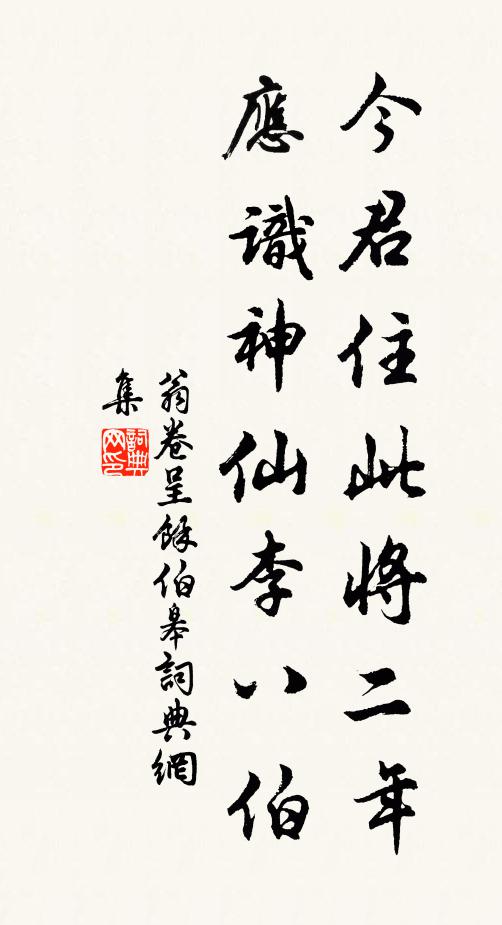 今君住此將二年
應識神仙李八伯
翁卷呈餘伯皋詞典網
集
詞典網印